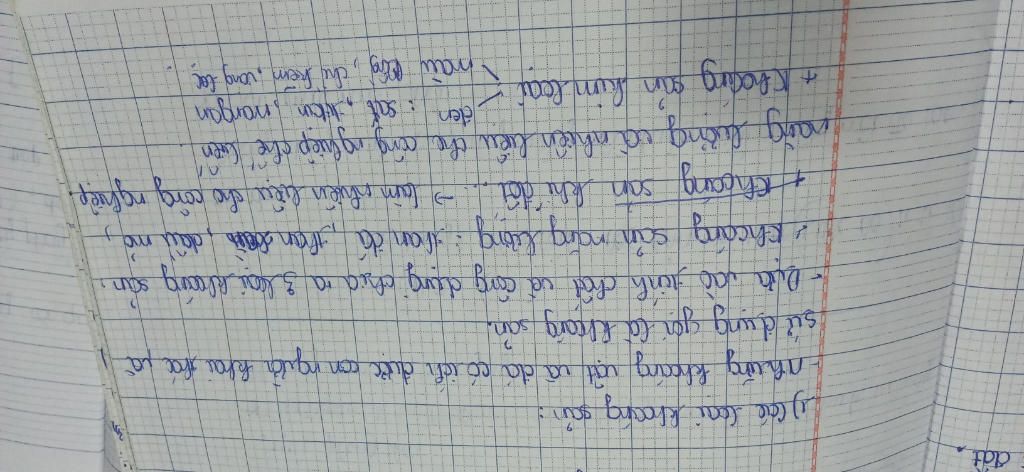 1) Các loại khoáng sản:
- Những khoáng vật và đá có ích được con người khai thác và
sử dụng gọi là khoáng sản.
- Dựa vào tính chất và công dụng chia ra 3 loại khoáng sản.
+ Khoáng sản năng lượng: than đá, than, dầu mỏ,
+ khoáng sản khí đốt... → làm nhiên liệu cho công nghiệp
năng lượng và nhiên liệu cho công nghiệp chế biến
+ Khoáng sản kim loại
đen: sắt, titan, mangan
màu: đồng, chì kẽm, vàng bạc.
đất.